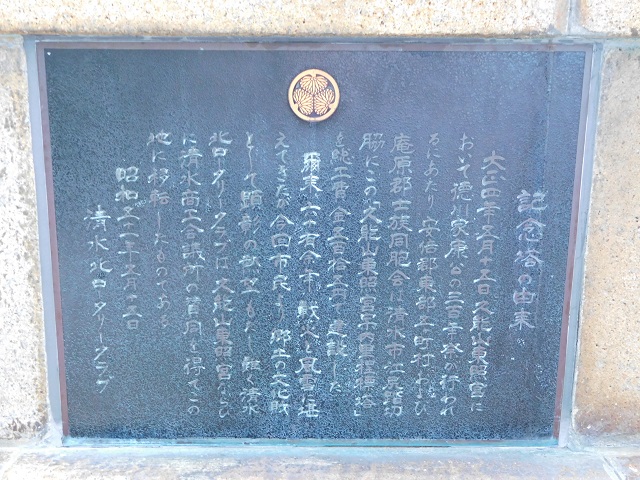 記念塔の由来
大正四年五月十五日久能山東照宮に
おいて徳川家康公の三百年祭が行われ
るにあたり安倍郡東部三町村および
庵原郡士族同胞会は清水市江尻踏切
脇にこの「久能山東照宮
を総工費金五百
建設した
爾来六十有余年戦火と風雪に堪
えてきたが今回市民より郷土の文化財
として顕彰の
清水
北ロータリークラブは久能山東照宮ならび
に清水商工会議所の賛同を得てこの
地に移転したものである
昭和五十一年五月十五日
清水北ロータリークラブ